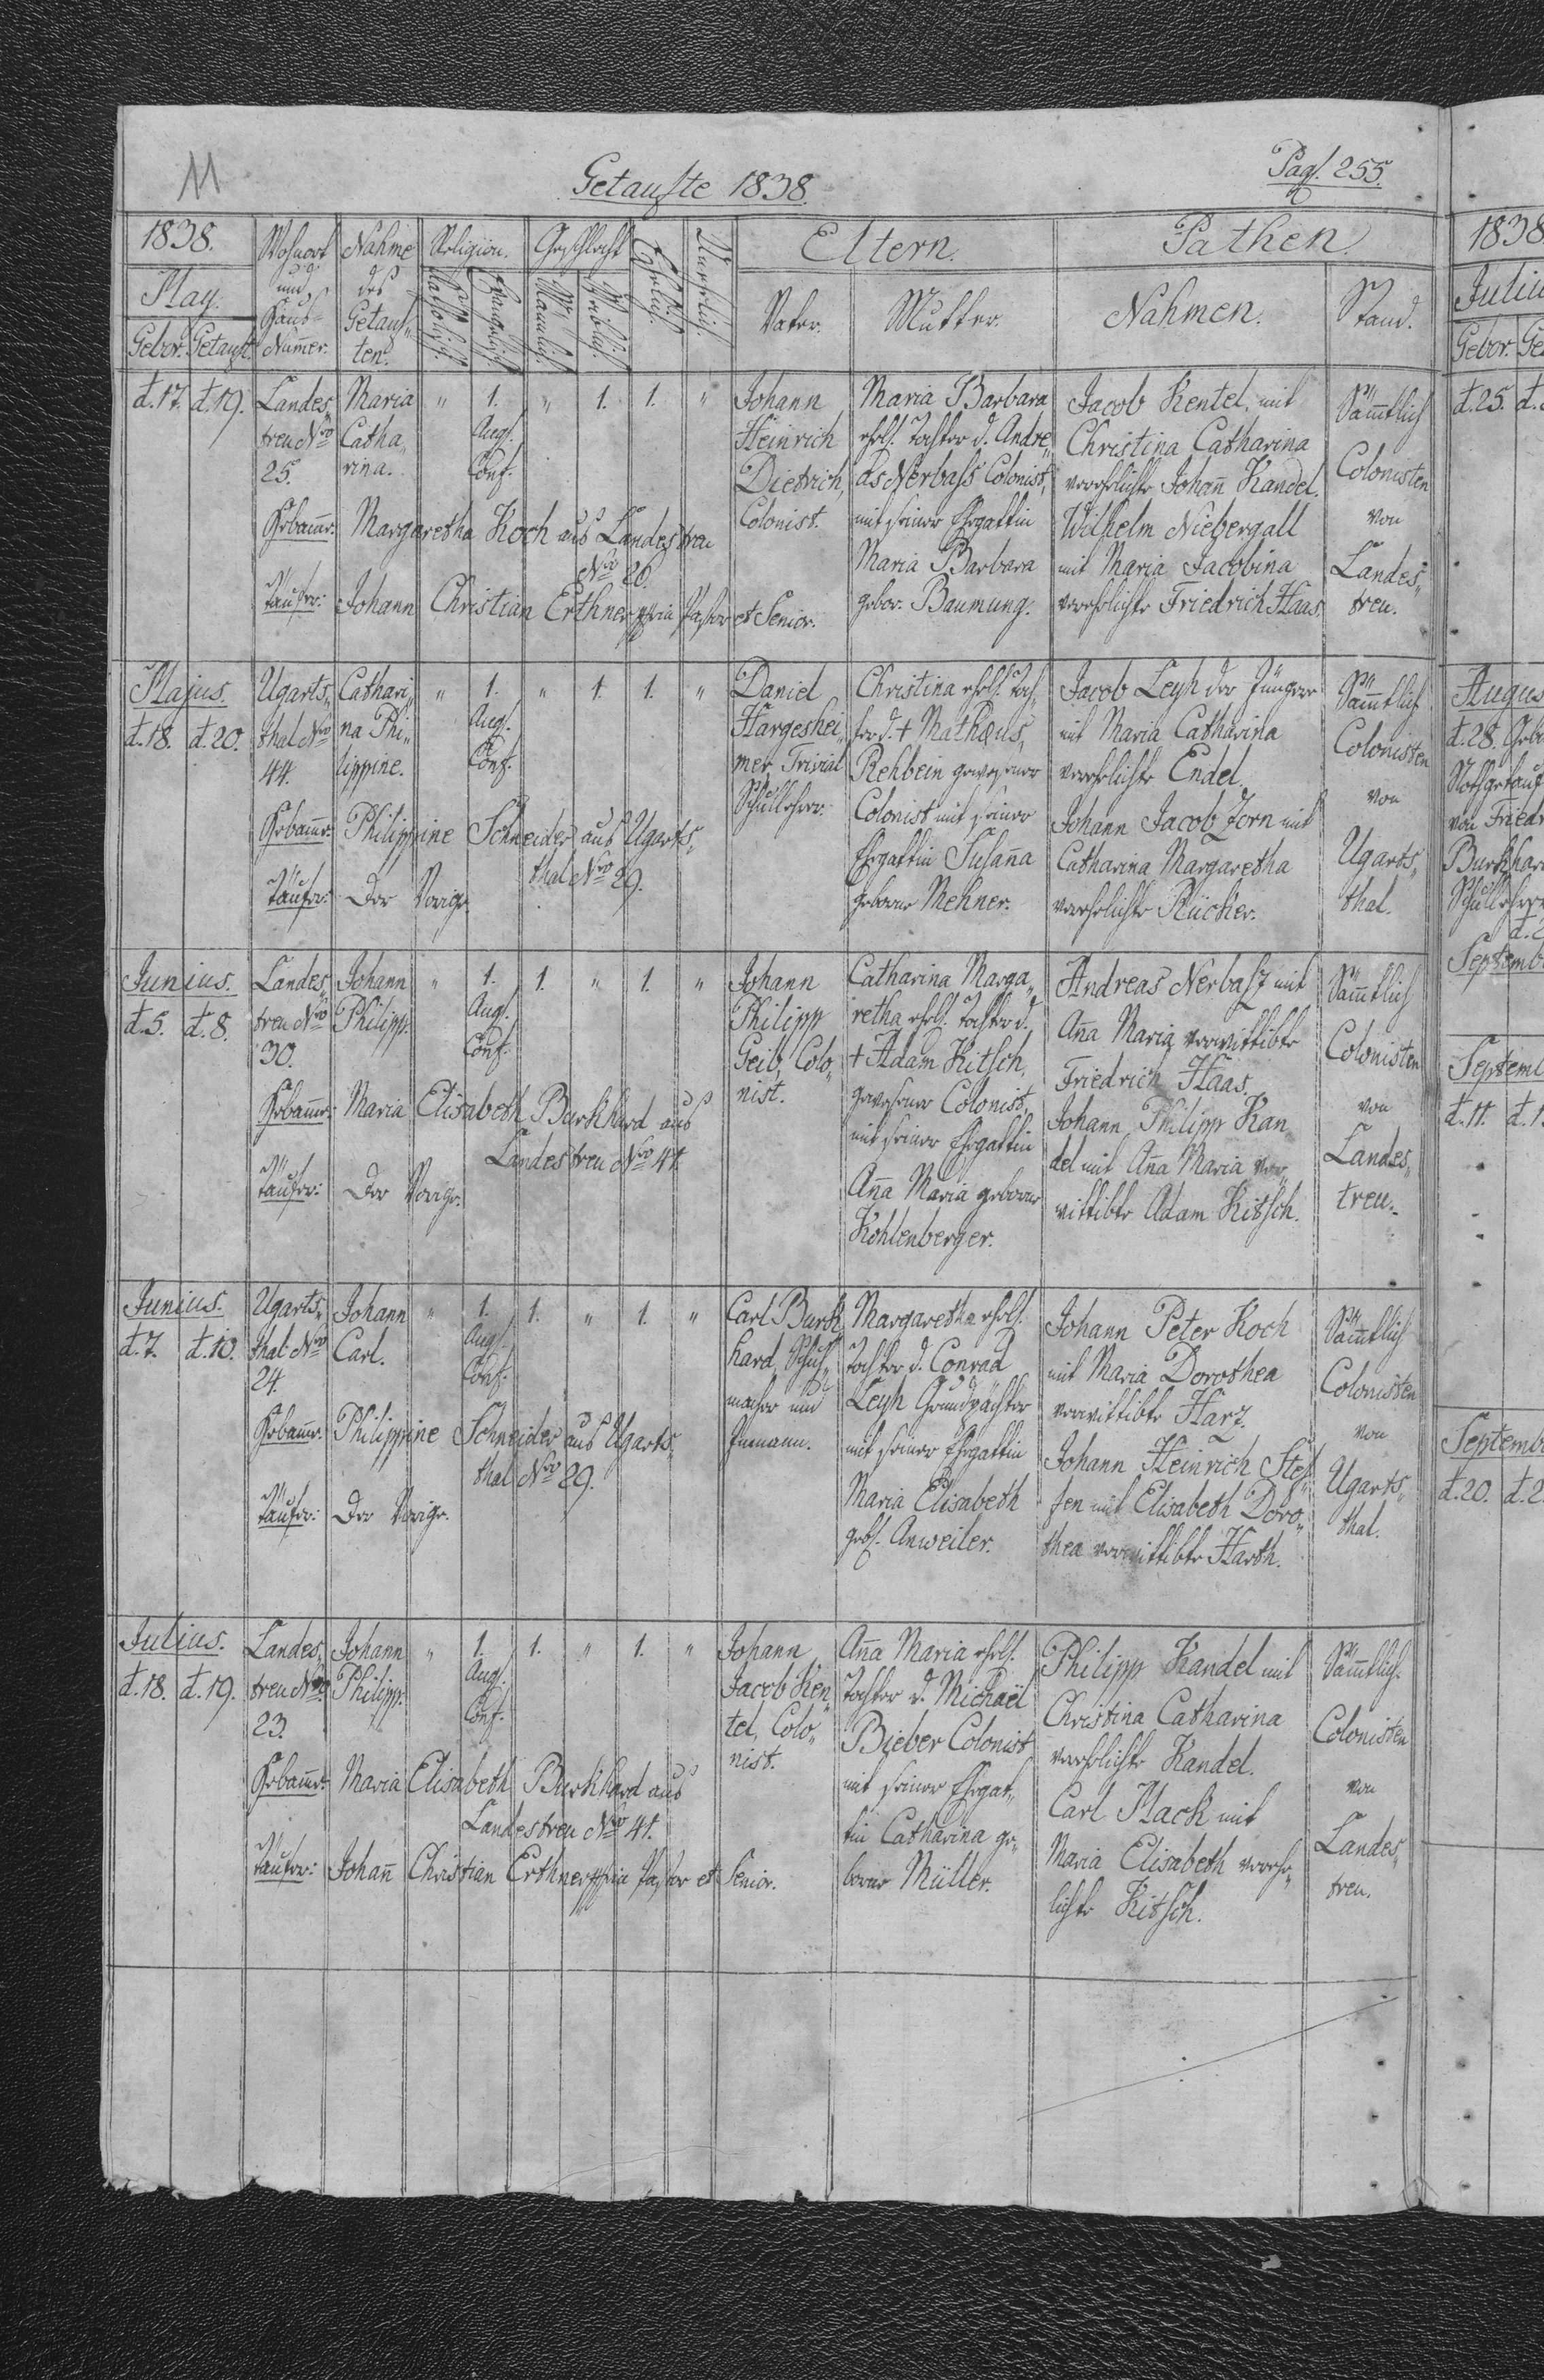 11
Getaufte 1838.
Pag. 255.
1838.
May.
Gebor. Getauft.
Wohnort
und
Haus
Num̄er.
Nahme
des
Getauf„
ten.
Religion.
Katholisch.
Evangelisch.
Geschlecht
Männlich.
Weiblich.
Ehelich.
Unehelich.
Eltern.
Vater.
Mutter.
Pathen.
Nahmen.
Stand.
d. 17. d. 19.
Landes„
treu Nro
25.
Maria
Catha„
rina.
" 1. " 1. 1. "
Augs.
Conf.
Johann
Heinrich
Dietrich,
Colonist.
Maria Barbara
ehel. Tochter d. Andre„
as Nerbass Colonist,
mit seiner Ehegattin
Maria Barbara
gebor. Baumung.
Jacob Kentel, mit
Christina Catharina
verehelichte Johan̄ Kandel.
Wilhelm Niebergall
mit Maria Jacobina
verehelichte Friedrich Haas.
Säm̄tlich
Colonisten
von
Landes„
treu.
Hebam̄e: Margaretha Koch aus Landestreu
Nro 26.
Täufer: Johann Christian Erthner mpria Pastor et Senior.
Majus.
d. 18. d. 20.
Ugarts„
thal Nro
44.
Cathari„
na Phi„
lippine.
" 1. " 1. 1. "
Augs.
Conf.
Daniel
Hargeshei„
mer Trivial
Schullehrer.
Christina ehel. Toch„
ter d. + Mathäus
Rehbein gewesener
Colonist mit seiner
Ehegattin Susan̄a
geborne Mehner.
Jacob Leyh der Jüngere
mit Maria Catharina
verehelichte Endel.
Johann Jacob Zorn mit
Catharina Margaretha
verehelichte Rücker.
Säm̄tlich
Colonisten
von
Ugarts„
thal.
Hebam̄e: Philippine Schneider aus Ugarts„
thal Nro 29.
Täufer: Der Vorige.
Junius.
d. 5. d. 8.
Landes„
treu Nro
30.
Johann
Philipp.
" 1. 1. " 1. "
Augs.
Conf.
Johann
Philipp
Geib, Colo„
nist.
Catharina Marga„
retha ehel. Tochter d.
+ Adam Kitsch,
gewesener Colonist,
mit seiner Ehegattin
An̄a Maria geborne
Kohlenberger.
Andreas Nerbass mit
An̄a Maria verwittibte
Friedrich Haas.
Johann Philipp Kan„
del mit An̄a Maria ver„
wittibte Adam Kitsch.
Säm̄tlich
Colonisten
von
Landes„
treu.
Hebam̄e: Maria Elisabeth Burkhard aus
Landestreu Nro 41.
Täufer: Der Vorige.
Junius.
d. 7. d. 10.
Ugarts„
thal Nro
24.
Johann
Carl.
" 1. 1. " 1. "
Augs.
Conf.
Carl Burk„
hard, Schuh„
macher und
Inmann.
Margaretha ehel.
Tochter d. Conrad
Leyh Grundpächter
mit seiner Ehegattin
Maria Elisabeth
geb. Anweiler.
Johann Peter Koch
mit Maria Dorothea
verwittibte Harz.
Johann Heinrich Stef„
fen mit Elisabeth Doro„
thea verwittibte Harth.
Säm̄tlich
Colonisten
von
Ugarts„
thal.
Hebam̄e: Philippine Schneider aus Ugarts„
thal Nro 29.
Täufer: Der Vorige.
Julius.
d. 18. d. 19.
Landes„
treu Nro
23.
Johann
Philipp.
" 1. 1. " 1. "
Augs.
Conf.
Johann
Jacob Ken„
tel, Colo„
nist.
An̄a Maria ehel.
Tochter d. Michaël
Bieber Colonist
mit seiner Ehegat„
tin Catharina ge„
borne Müller.
Philipp Kandel mit
Christina Catharina
verehelichte Kandel.
Carl Mack mit
Maria Elisabeth verehe„
lichte Kitsch.
Säm̄tlich.
Colonisten
von
Landes„
treu.
Hebam̄e: Maria Elisabeth Burkhard aus
Landestreu Nro 41.
Täufer: Johan̄ Christian Erthner mpria Pastor et Senior.
1838.
Juliu
Gebor. Ge
d. 25. d.
Augus
d. 28. Geb
Nothgetauf
von Friedr
Burkhar
Schullehrer
d. 2
Septemb
Septemb
d. 11. d. 1
Septemb
d. 20. d. 2